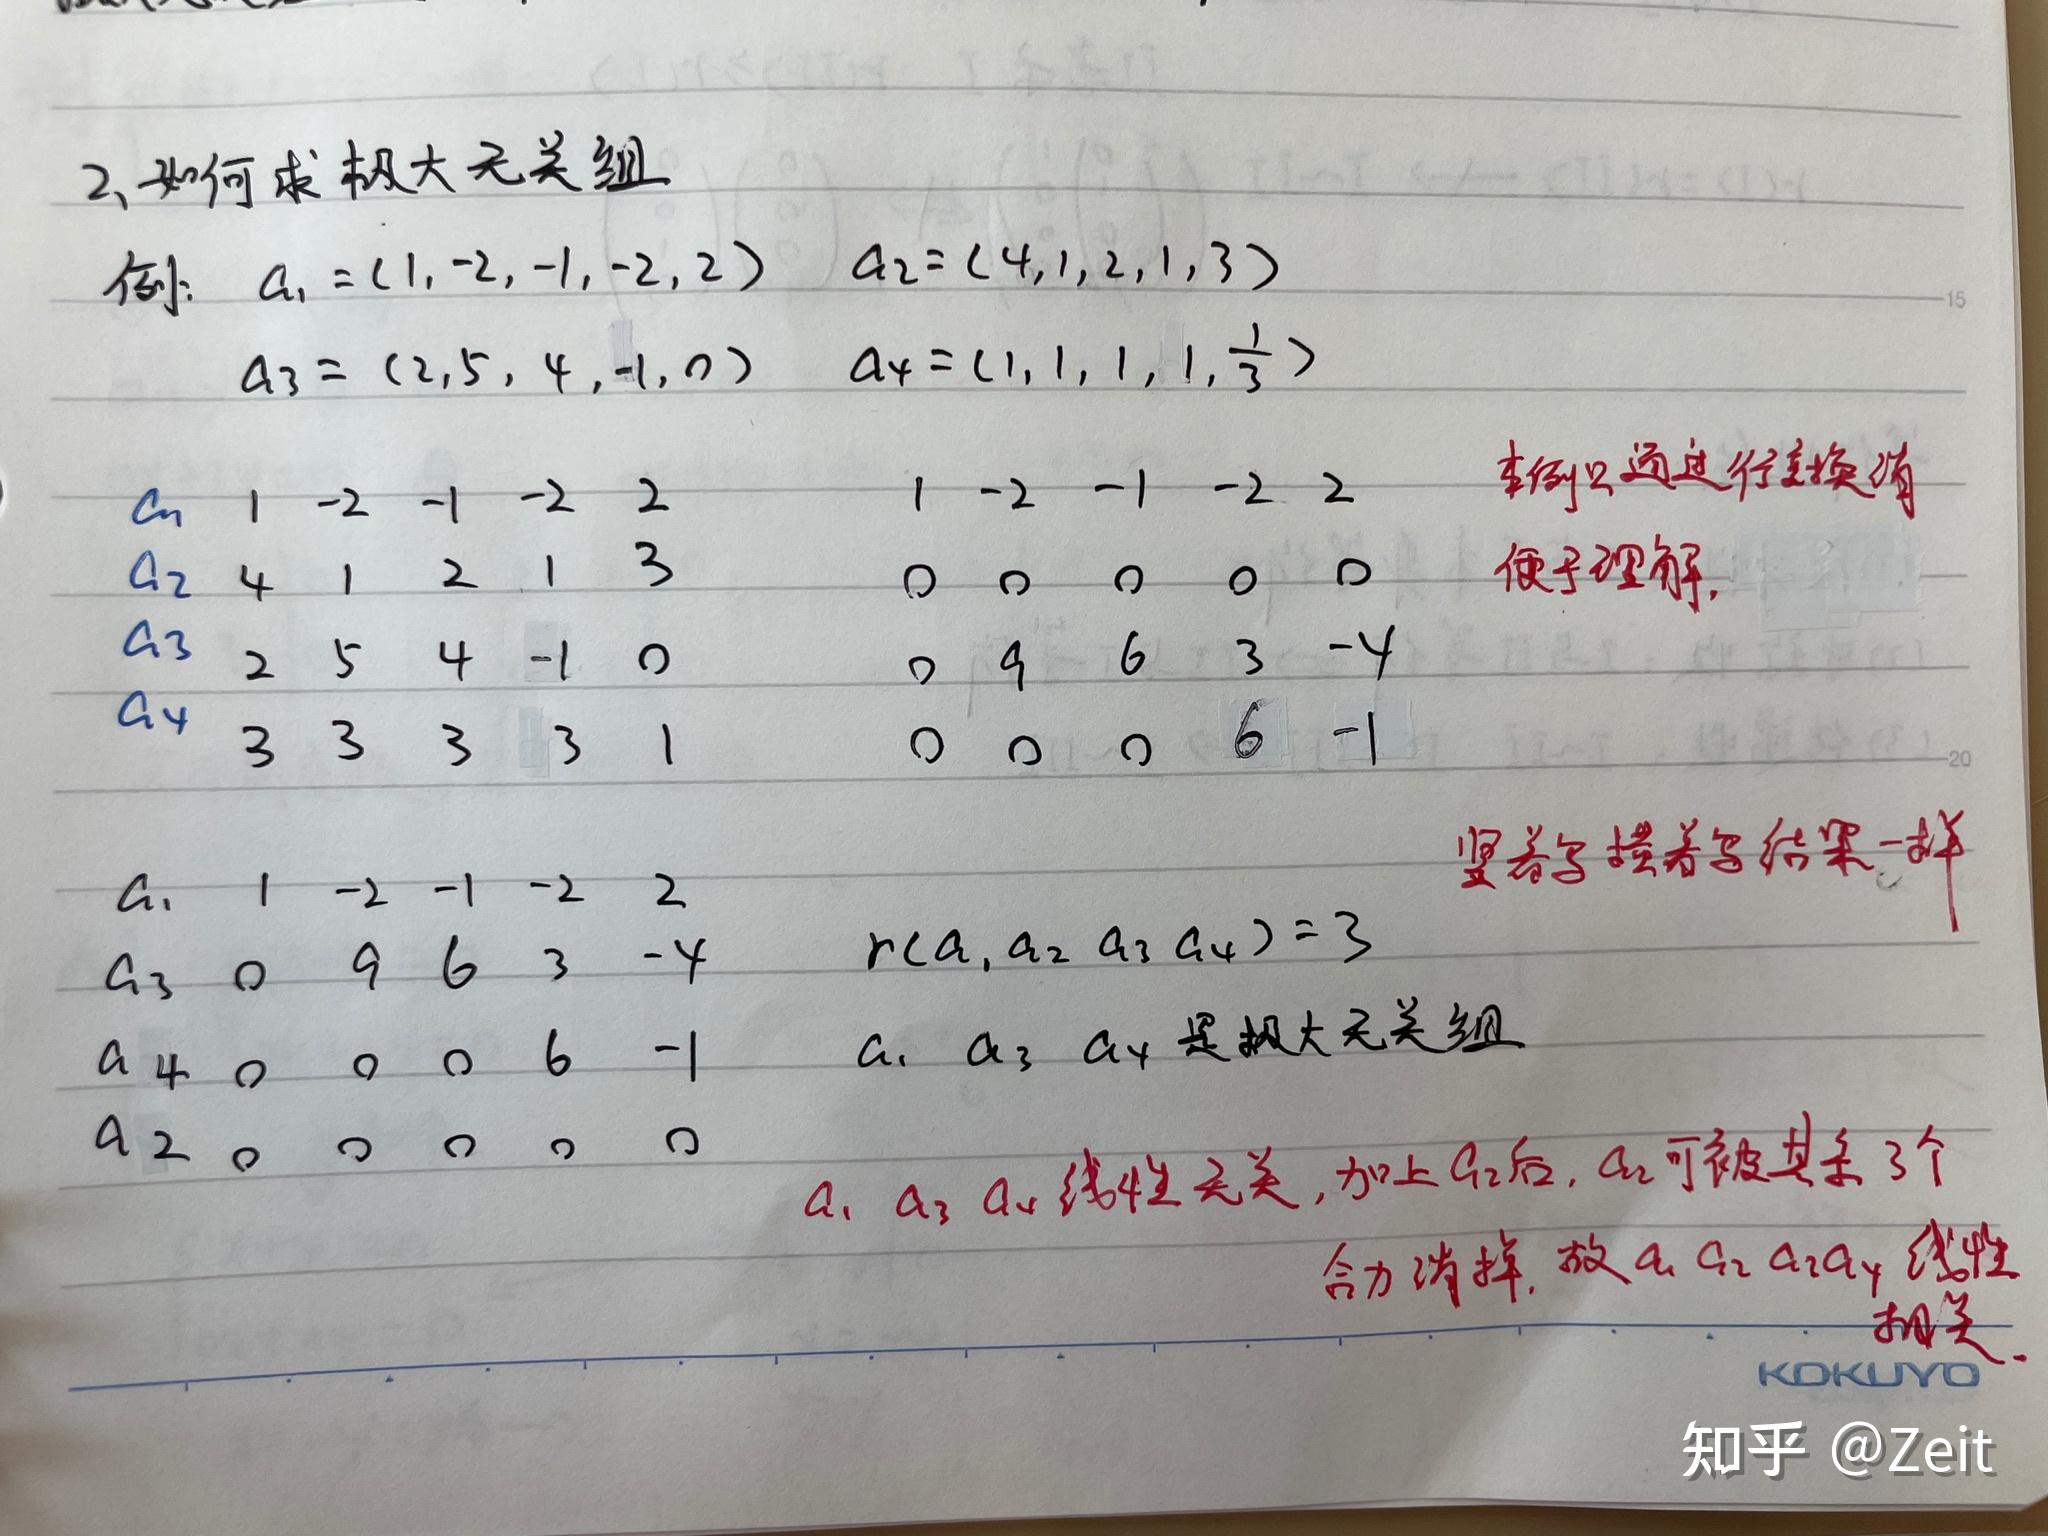 2、如何求极大无关组
例: a1 = (1, -2, -1, -2, 2) a2 = (4, 1, 2, 1, 3)
15
a3 = (2, 5, 4, -1, 0) a4 = (1, 1, 1, 1, 1/3)
a1 1 -2 -1 -2 2 1 -2 -1 -2 2 本例只通过行变换消
a2 4 1 2 1 3 0 0 0 0 0 便于理解.
a3 2 5 4 -1 0 0 9 6 3 -4
a4 3 3 3 3 1 0 0 0 6 -1
20
竖着写横着写结果一样
a1 1 -2 -1 -2 2
a3 0 9 6 3 -4 r(a1 a2 a3 a4) = 3
a4 0 0 0 6 -1 a1 a3 a4 是极大无关组
a2 0 0 0 0 0
a1 a3 a4 线性无关, 加上a2后, a2可被其余3个
合力消掉, 故 a1 a2 a3 a4 线性
相关.
KOKUYO
知乎 @Zeit